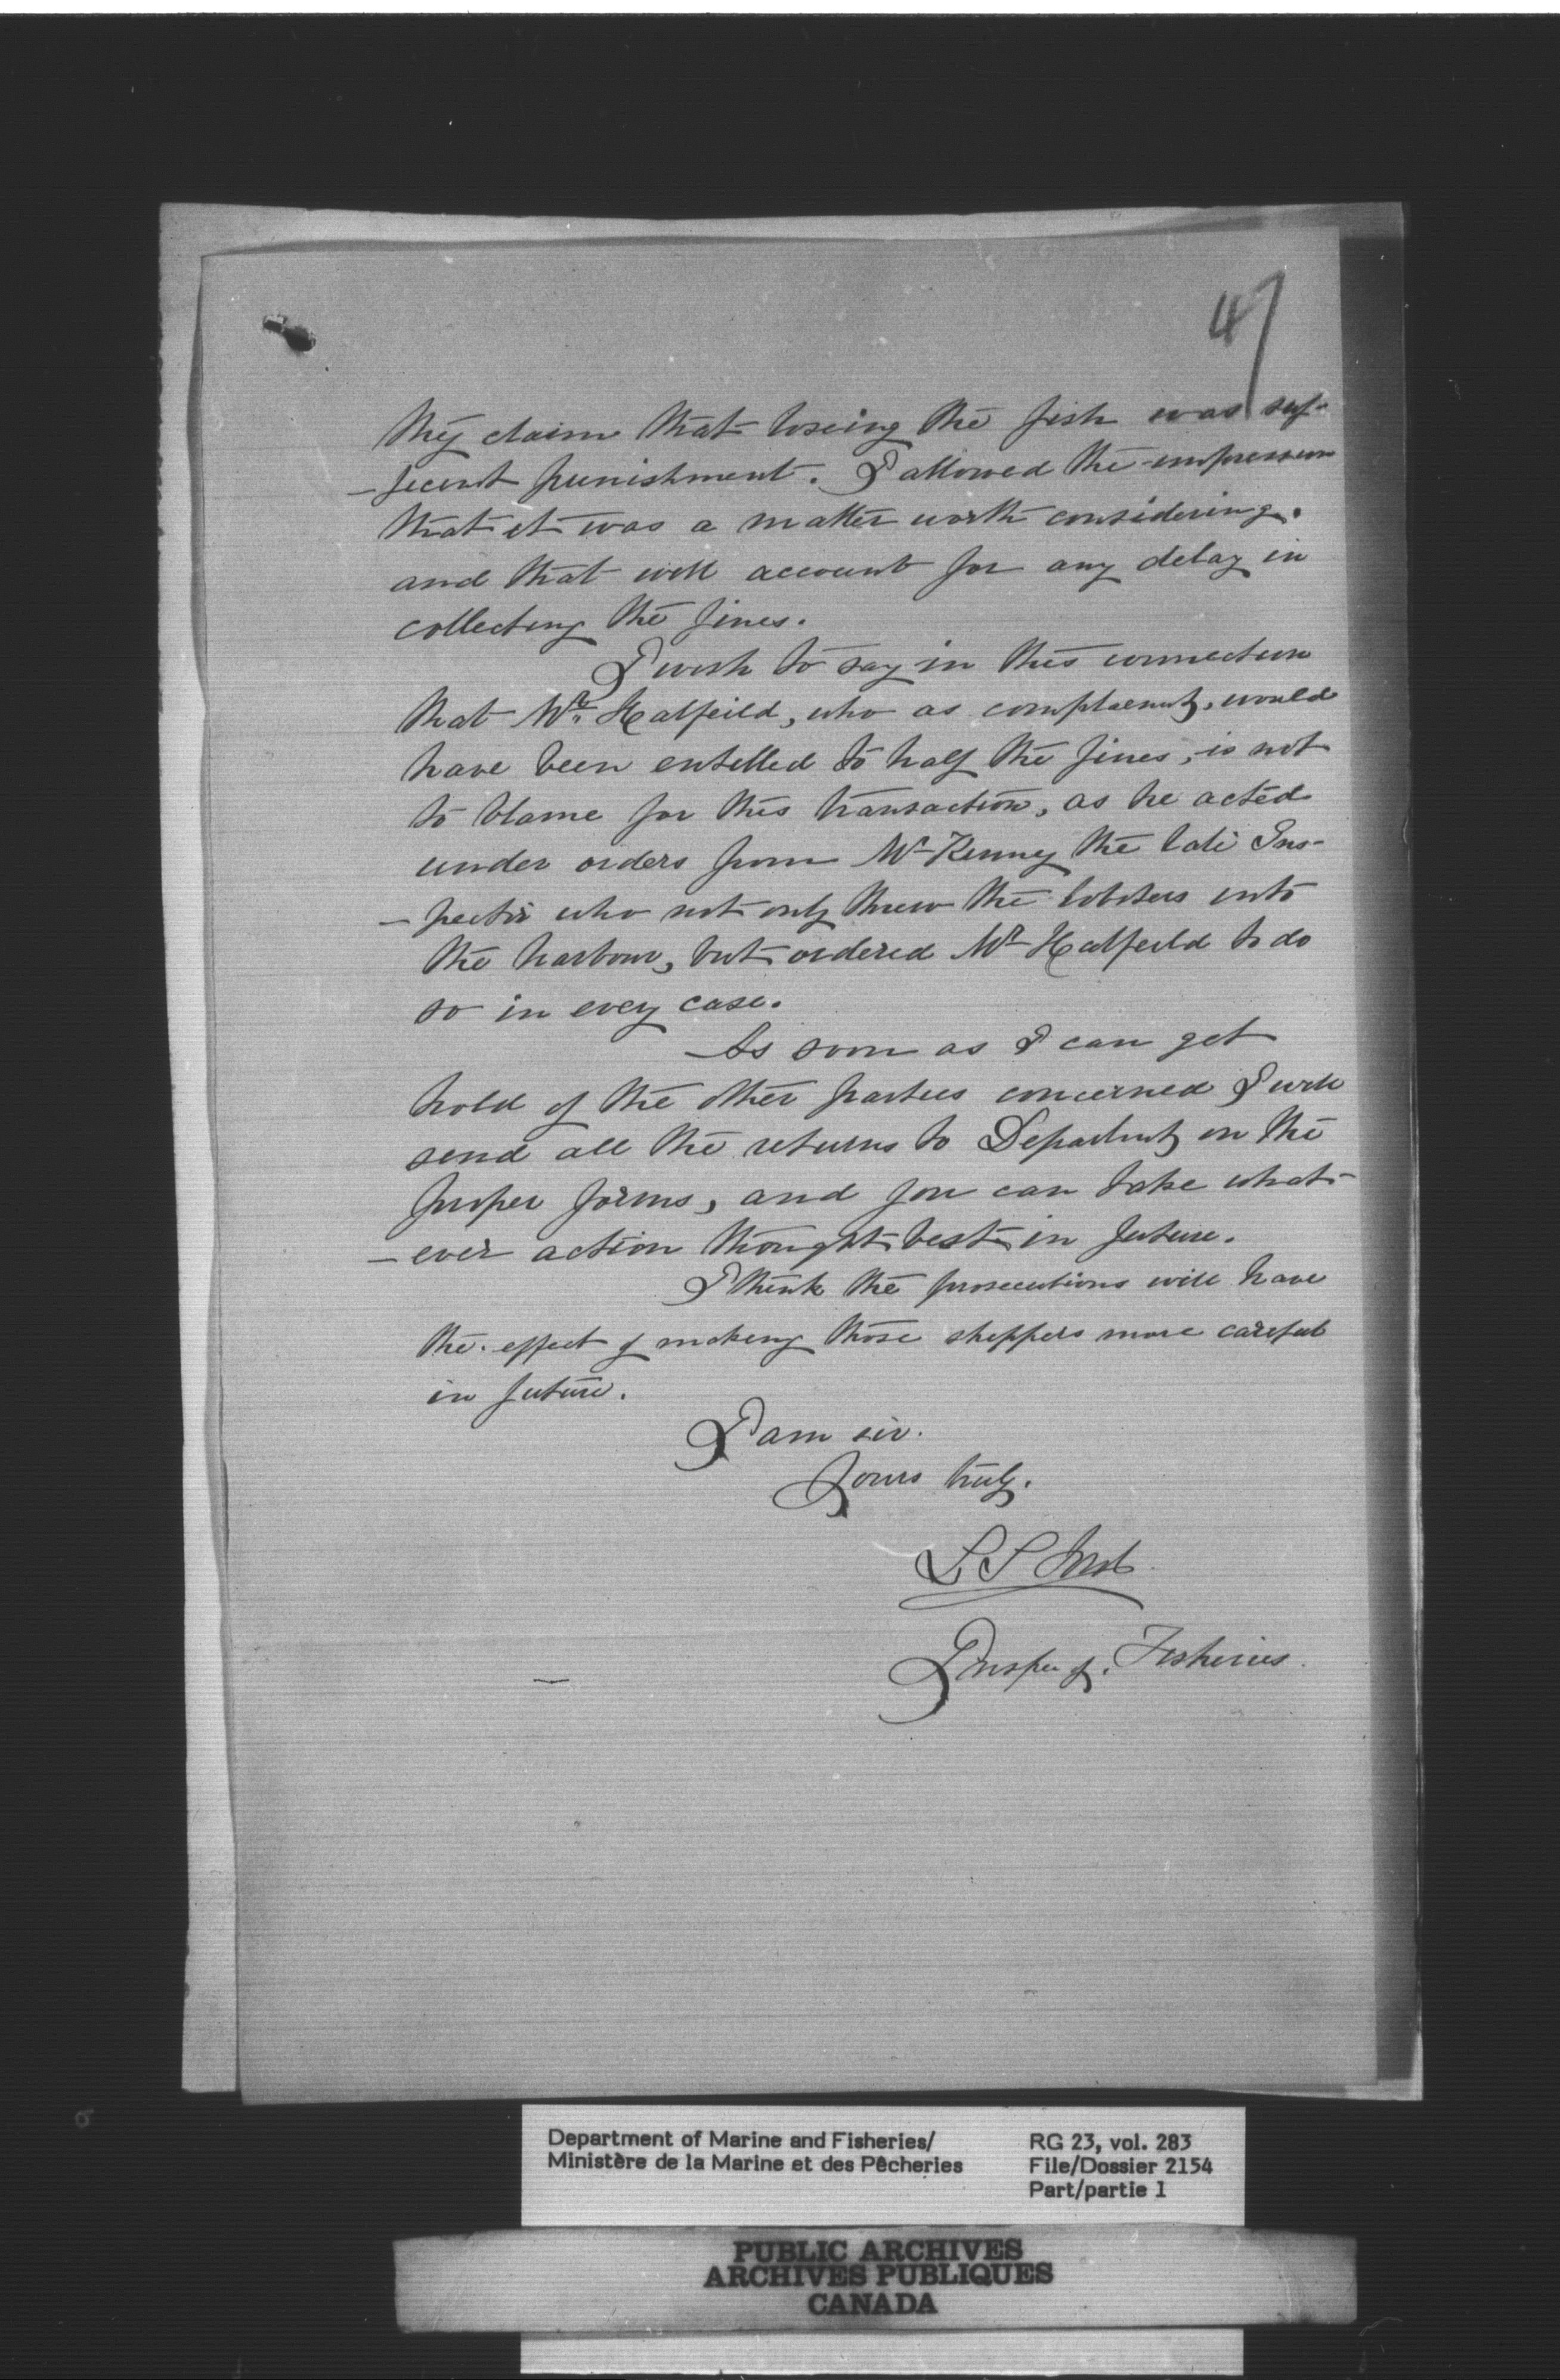 47
they claim that loseing the fish was suf-
-ficent punishment. I allowed the impression
that it was a matter worth considering.
and that will account for any delay in
collecting the fines.
I wish to say in this connection
that Mr. Hatfeild, who as complaenent, would
have been entelled to half the fines, is not
to blame for this transaction, as he acted
under orders from Mr Kenney the late Ins-
-pector who not only threw the lobsters into
the harbour, but ordered Mr Hatfeild to do
so in every case.
As soon as I can get
hold of the other parties concerned I will
send all the returns to Department on the
proper forms, and you can take what-
-ever action thought best in future.
I think the prosecutions will have
the effect of making those shippers more careful
in future.
I am sir.
Yours truly.
L S Ford
Inspr of. Fisheries.
Department of Marine and Fisheries/
Ministère de la Marine et des Pêcheries
RG 23, vol. 283
File/Dossier 2154
Part/partie 1
PUBLIC ARCHIVES
ARCHIVES PUBLIQUES
CANADA